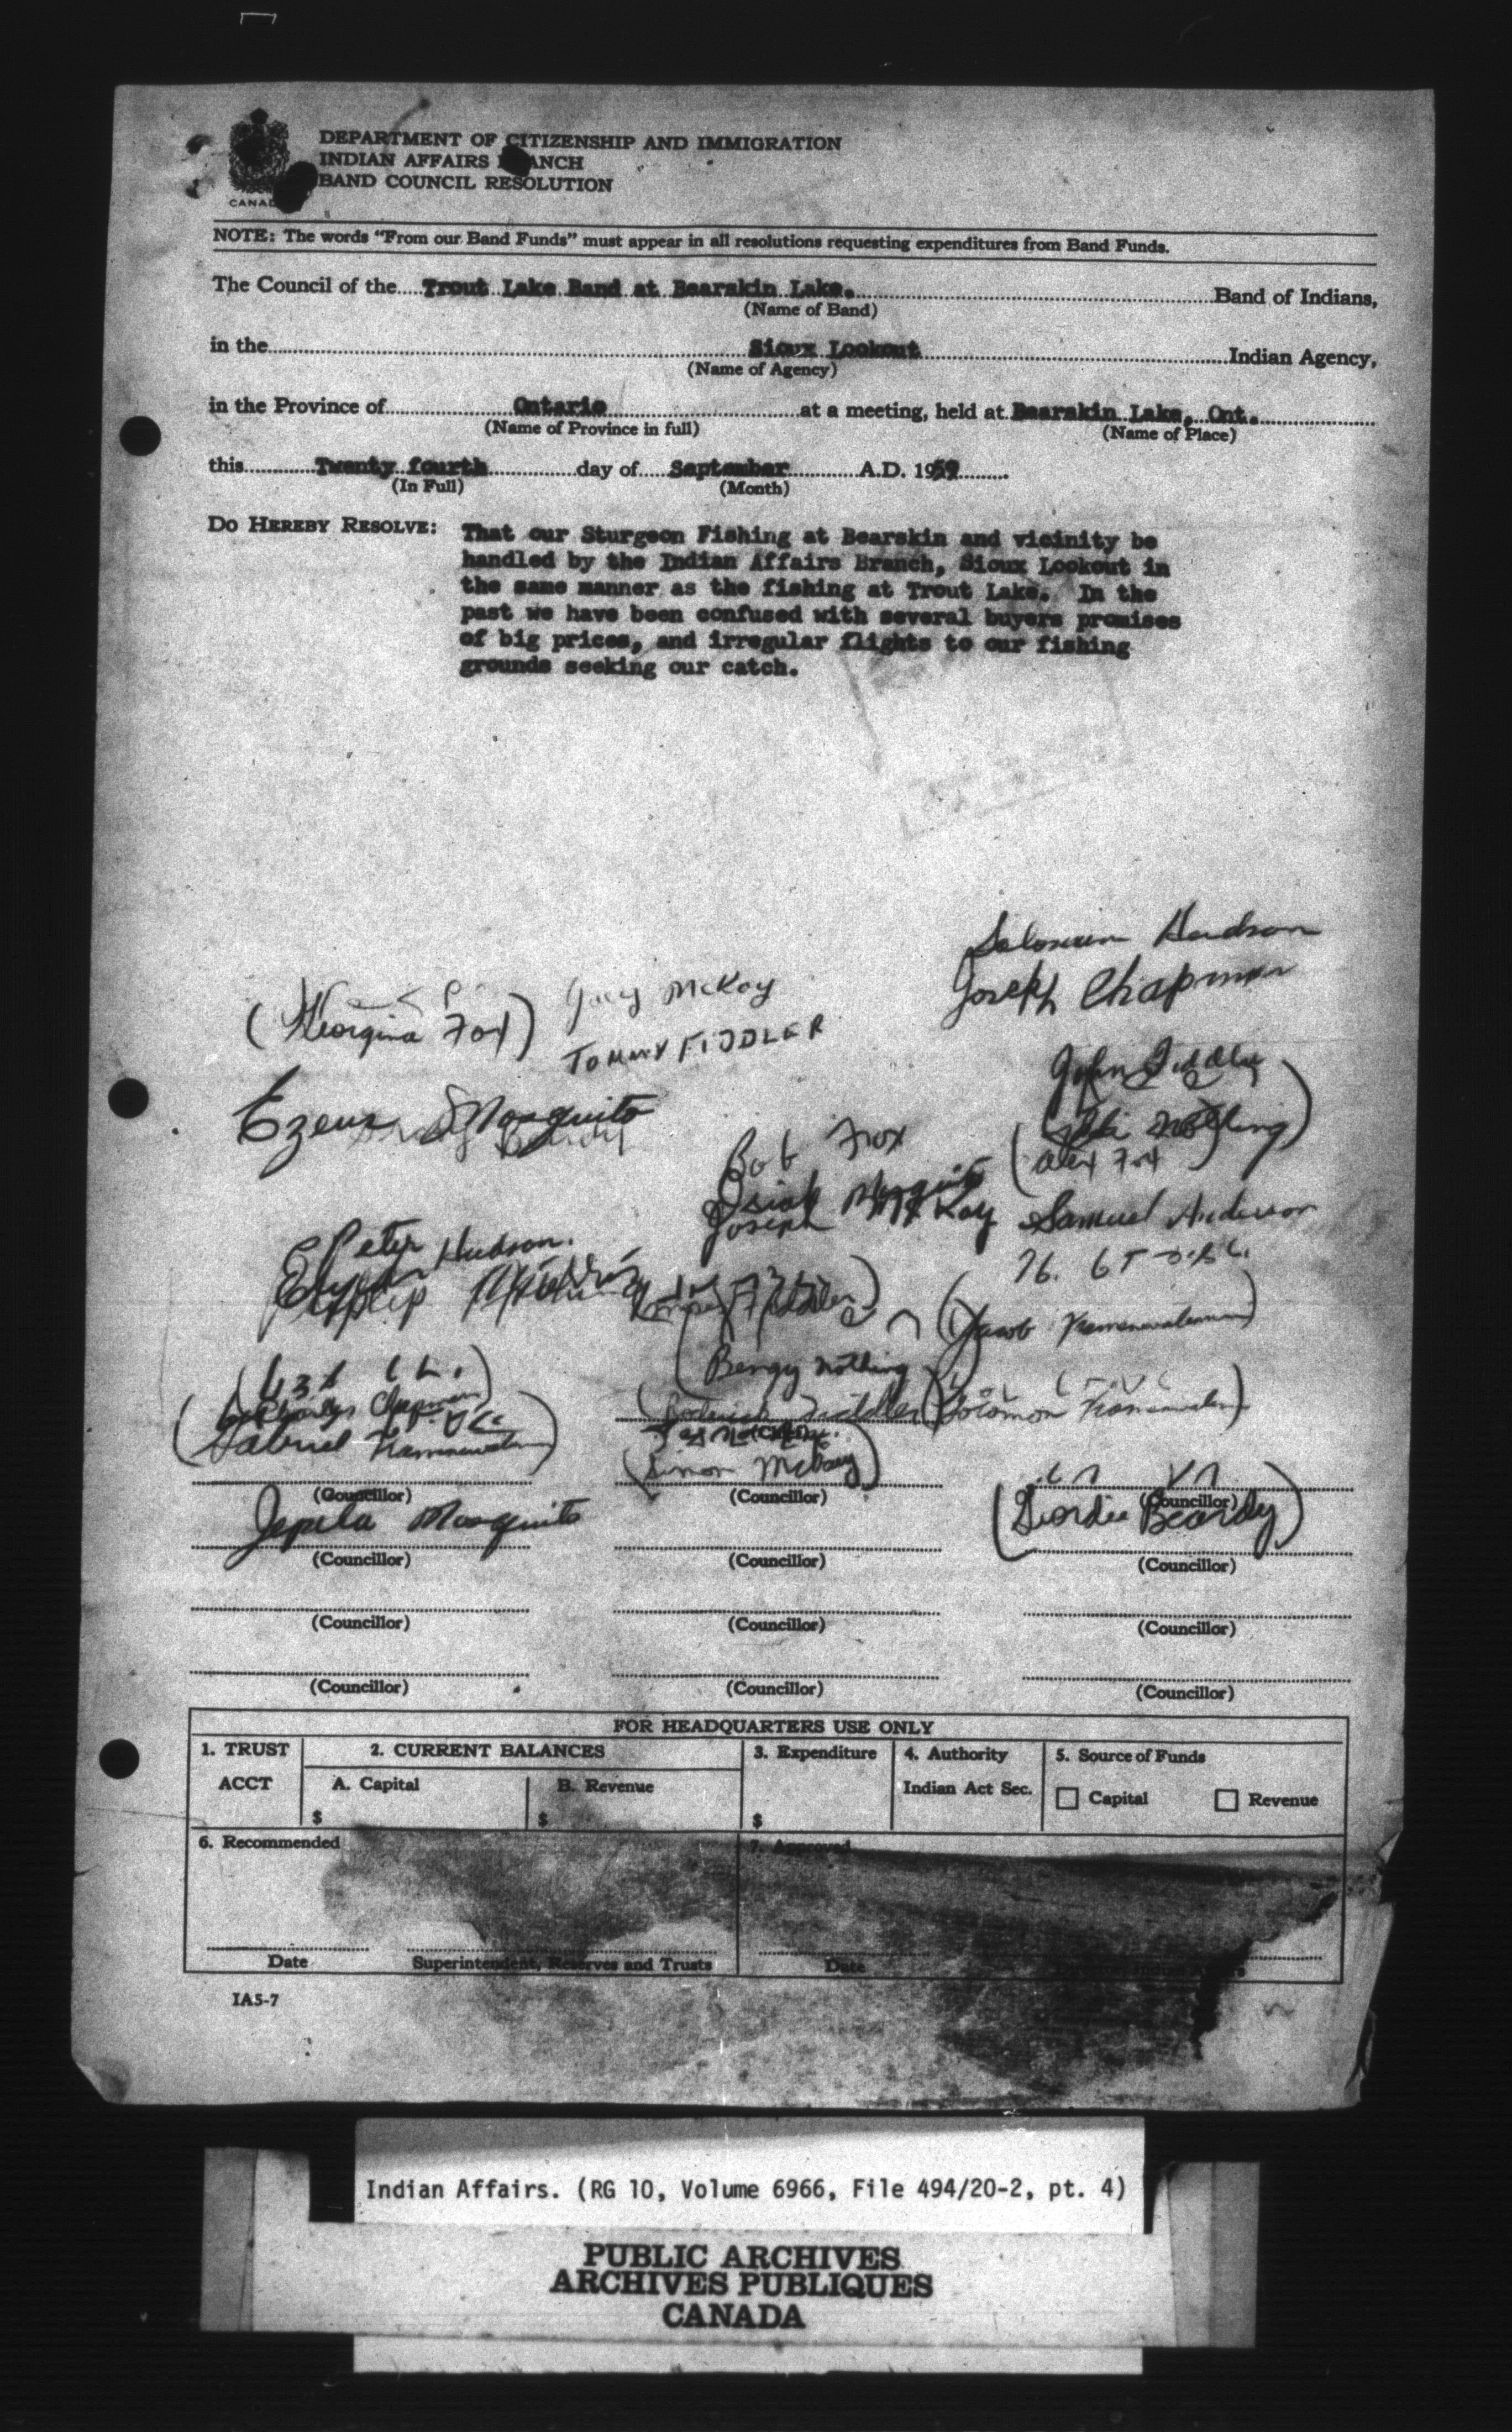 DEPARTMENT OF CITIZENSHIP AND IMMIGRATION
INDIAN AFFAIRS BRANCH
BAND COUNCIL RESOLUTION
CANADA
NOTE: The words "From our Band Funds" must appear in all resolutions requesting expenditures from Band Funds.
The Council of the Trout Lake Band at Bearskin Lake. Band of Indians,
(Name of Band)
in the Sioux Lookout Indian Agency,
(Name of Agency)
in the Province of Ontario at a meeting, held at Bearskin Lake, Ont.
(Name of Province in full) (Name of Place)
this Twenty fourth day of September A.D. 1959
(In Full) (Month)
DO HEREBY RESOLVE: That our Sturgeon Fishing at Bearskin and vicinity be
handled by the Indian Affairs Branch, Sioux Lookout in
the same manner as the fishing at Trout Lake. In the
past we have been confused with several buyers promises
of big prices, and irregular flights to our fishing
grounds seeking our catch.
Hudson
Joseph Chapman
(Georgina Fox) McKay
TOMMY FIDDLER
John Fiddler
Mosquito
Bob Fox
(Alex Fox)
Isiah Mosquito
Joseph McKay
Samuel Anderson
Peter Hudson.
Fiddler)
(Jacob
(Bengy Nothing)
Charles Chapman
Gabriel
(Roderick Fiddler)
(Solomon
(Simon McKay)
(Councillor) (Councillor) (Councillor)
Mosquito
(Geordie Beardy)
(Councillor) (Councillor) (Councillor)
(Councillor) (Councillor) (Councillor)
(Councillor) (Councillor) (Councillor)
FOR HEADQUARTERS USE ONLY
1. TRUST ACCT
2. CURRENT BALANCES
A. Capital $
B. Revenue $
3. Expenditure $
4. Authority Indian Act Sec.
5. Source of Funds
Capital Revenue
6. Recommended
7. Approved
Date Superintendent, Reserves and Trusts Date
IA5-7
Indian Affairs. (RG 10, Volume 6966, File 494/20-2, pt. 4)
PUBLIC ARCHIVES
ARCHIVES PUBLIQUES
CANADA